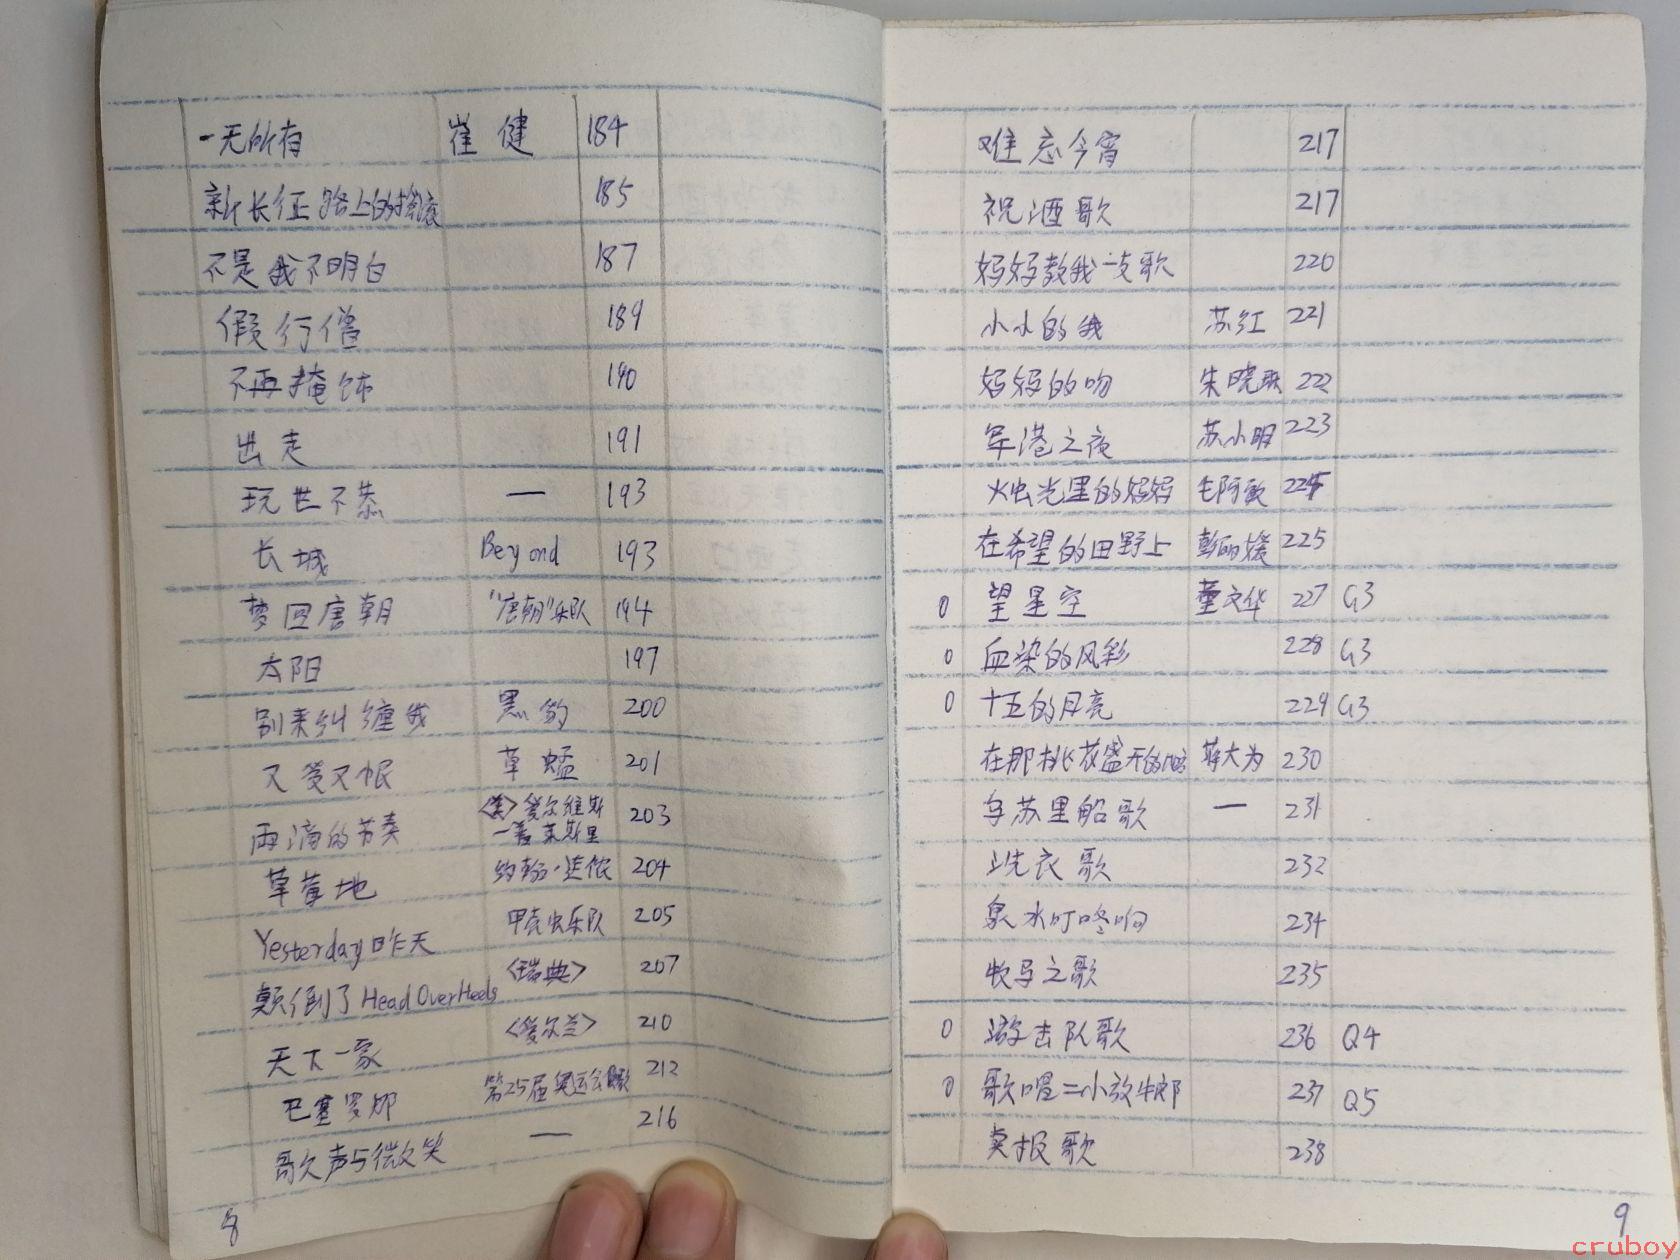 一无所有 崔健 184
新长征路上的摇滚 185
不是我不明白 187
假行僧 189
不再掩饰 190
出走 191
玩世不恭 — 193
长城 Beyond 193
梦回唐朝 "唐朝"乐队 194
太阳 197
别来纠缠我 黑豹 200
又爱又恨 草蜢 201
雨滴的节奏 <美>爱尔维斯 203
一普莱斯里
草莓地 约翰·连侬 204
Yesterday昨天 甲壳虫乐队 205
颠倒了Head Over Heels <瑞典> 207
天下一家 <爱尔兰> 210
巴塞罗那 第25届奥运会 212
歌声与微笑 — 216
8
难忘今宵 217
祝酒歌 217
妈妈教我一支歌 220
小小的我 苏红 221
妈妈的吻 朱晓琳 222
军港之夜 苏小明 223
火虫光里的妈妈 毛阿敏
在希望的田野上 彭丽媛 225
0 望星空 董文华 227 G3
0 血染的风彩 228 G3
0 十五的月亮 229 G3
在那桃花盛开的地方 蒋大为 230
乌苏里船歌 — 231
洗衣歌 232
泉水叮咚响 234
牧马之歌 235
0 游击队歌 236 Q4
0 歌唱二小放牛郎 237 Q5
卖报歌 238
9
cruboy